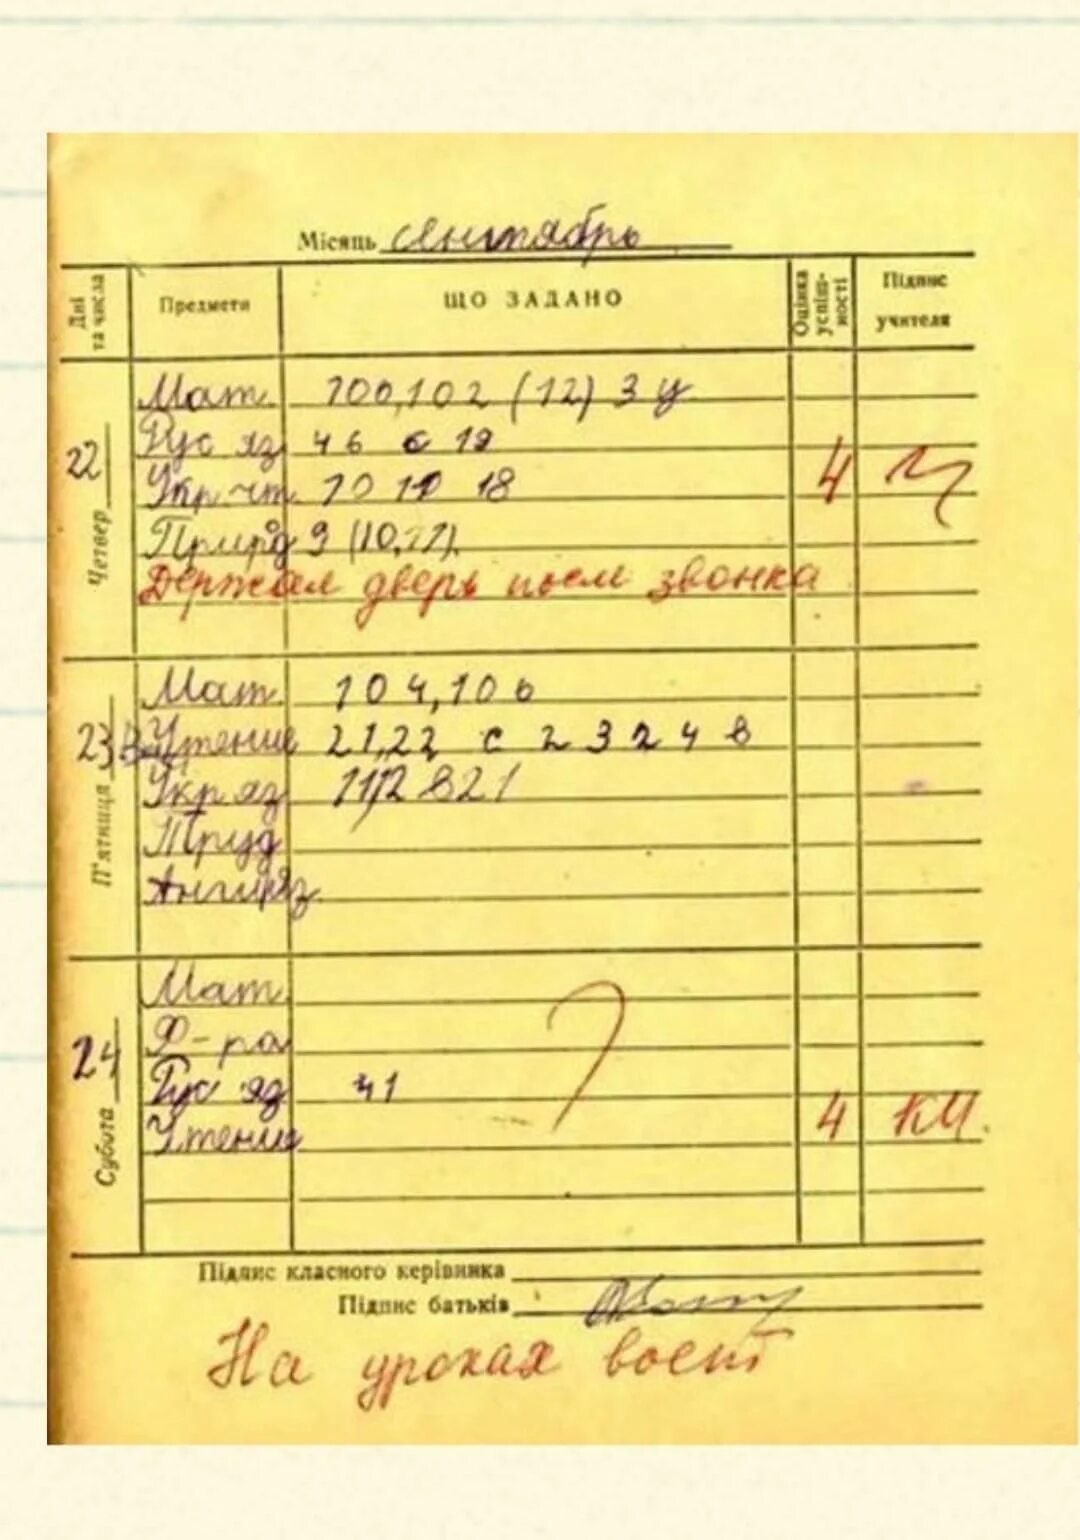 Місяць сентябрь
Дні та числа Предмети ЩО ЗАДАНО Оцінка успіш-ності Підпис учителя
22 Четвер
Мат. 100,102 (12) 3 у
Рус яз 46 с 19
Укр. чт. 10 11 18 4
Природ 9 (10,11).
Держал дверь после звонка
23 П'ятниця
Мат. 104,106
Чтение 21,22 с 23 24 в
Укр яз 11,12 в 21
Труд
Англ яз.
24 Субота
Мат.
Ф-ра ?
Рус яз 41
Чтение 4 КМ.
Підпис класного керівника
Підпис батьків
На уроках воет